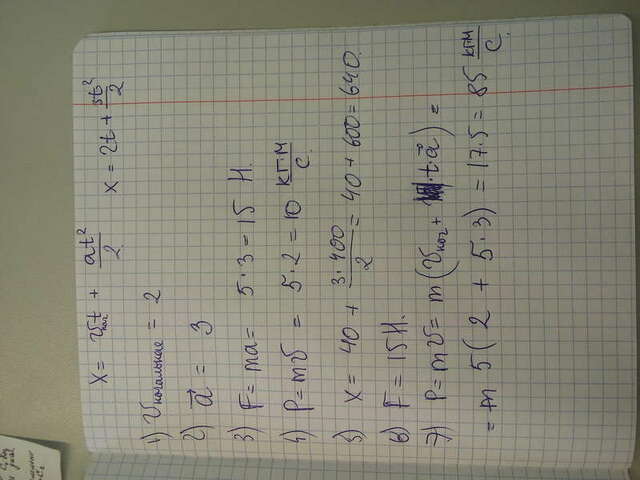 x = v нач t + at²/2 x = 2t + 3t²/2
1) v начальная = 2
2) a⃗ = 3
3) F = ma = 5·3 = 15 Н.
4) P = mv = 5·2 = 10 кг·м/с.
5) x = 40 + 3·400/2 = 40 + 600 = 640.
6) F = 15 Н.
7) P = mv = m(v нач + ·t·a⃗) =
= m 5(2 + 5·3) = 17·5 = 85 кг·м/с.